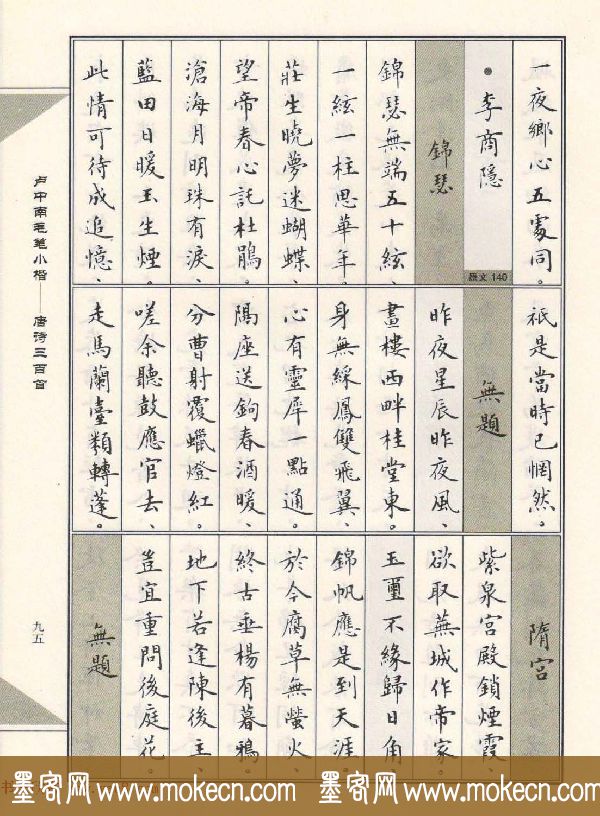 一夜鄉心五處同。
• 李商隱
釋文 140
錦瑟
錦瑟無端五十絃、
一絃一柱思華年。
莊生曉夢迷蝴蝶、
望帝春心託杜鵑。
滄海月明珠有淚、
藍田日暖玉生煙。
此情可待成追憶、
祇是當時已惘然。
無題
昨夜星辰昨夜風、
畫樓西畔桂堂東。
身無綵鳳雙飛翼、
心有靈犀一點通。
隔座送鉤春酒暖、
分曹射覆蠟燈紅。
嗟余聽鼓應官去、
走馬蘭臺類轉蓬。
隋宮
紫泉宮殿鎖煙霞、
欲取蕪城作帝家。
玉璽不緣歸日角、
錦帆應是到天涯。
於今腐草無螢火、
終古垂楊有暮鴉。
地下若逢陳後主、
豈宜重問後庭花。
無題
卢中南毛笔小楷——唐诗三百首
九五
墨客网 www.mokecn.com 墨客网 www.mokecn.com